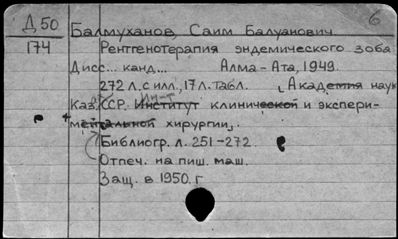 6
Д 50
174
Балмуханов, Саим Балуанович
Рентгенотерапия эндемического зоба
Дисс... канд... Алма-Ата, 1949.
272 л. с илл., 17 л. табл. Академия наук
Ин-т
Каз. ССР. Институт клинической и экспери-
ментальной хирургии.
Библиогр. л. 251-272.
Отпеч. на пиш. маш.
Защ. в 1950. г